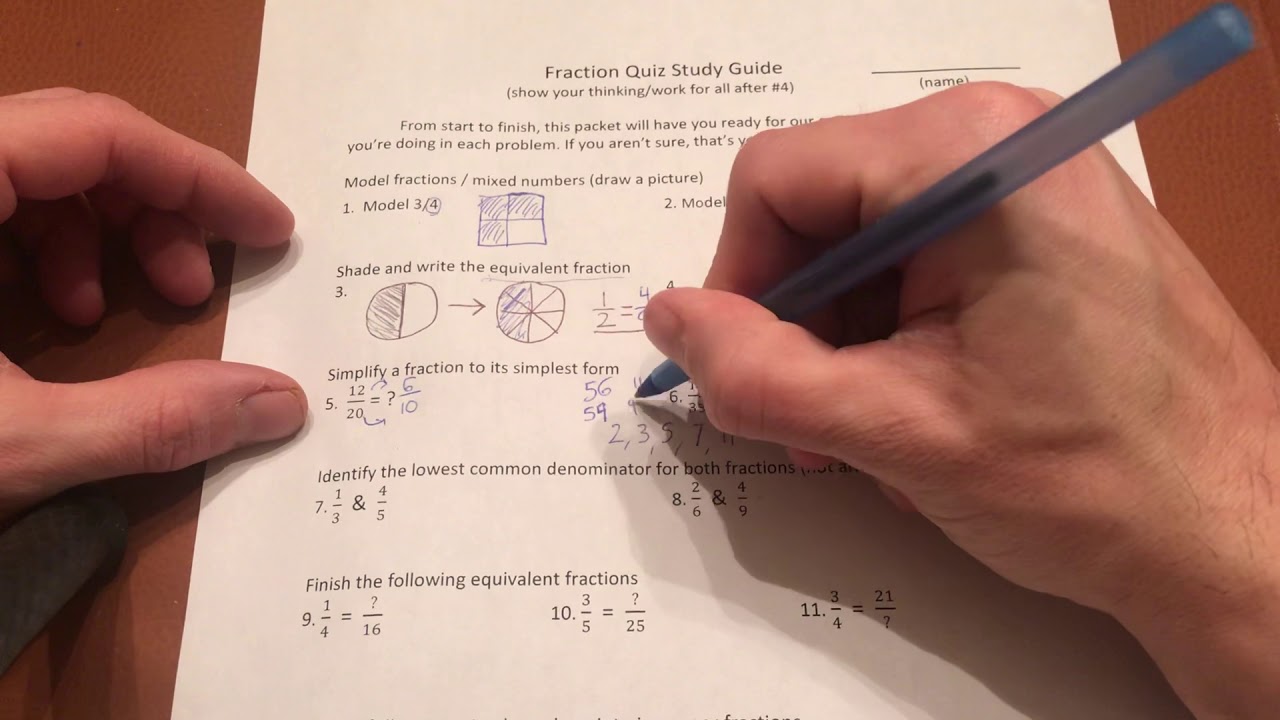 Fraction Quiz Study Guide
(show your thinking/work for all after #4)
(name)
From start to finish, this packet will have you ready for our
you're doing in each problem. If you aren't sure, that's
Model fractions / mixed numbers (draw a picture)
1. Model 3/4
2. Model
Shade and write the equivalent fraction
3.
1/2 = 4
Simplify a fraction to its simplest form
5. 12/20 = ? 6/10
56
59
6.
2, 3, 5, 7, 11
Identify the lowest common denominator for both fractions
7. 1/3 & 4/5
8. 2/6 & 4/9
Finish the following equivalent fractions
9. 1/4 = ?/16
10. 3/5 = ?/25
11. 3/4 = 21/?